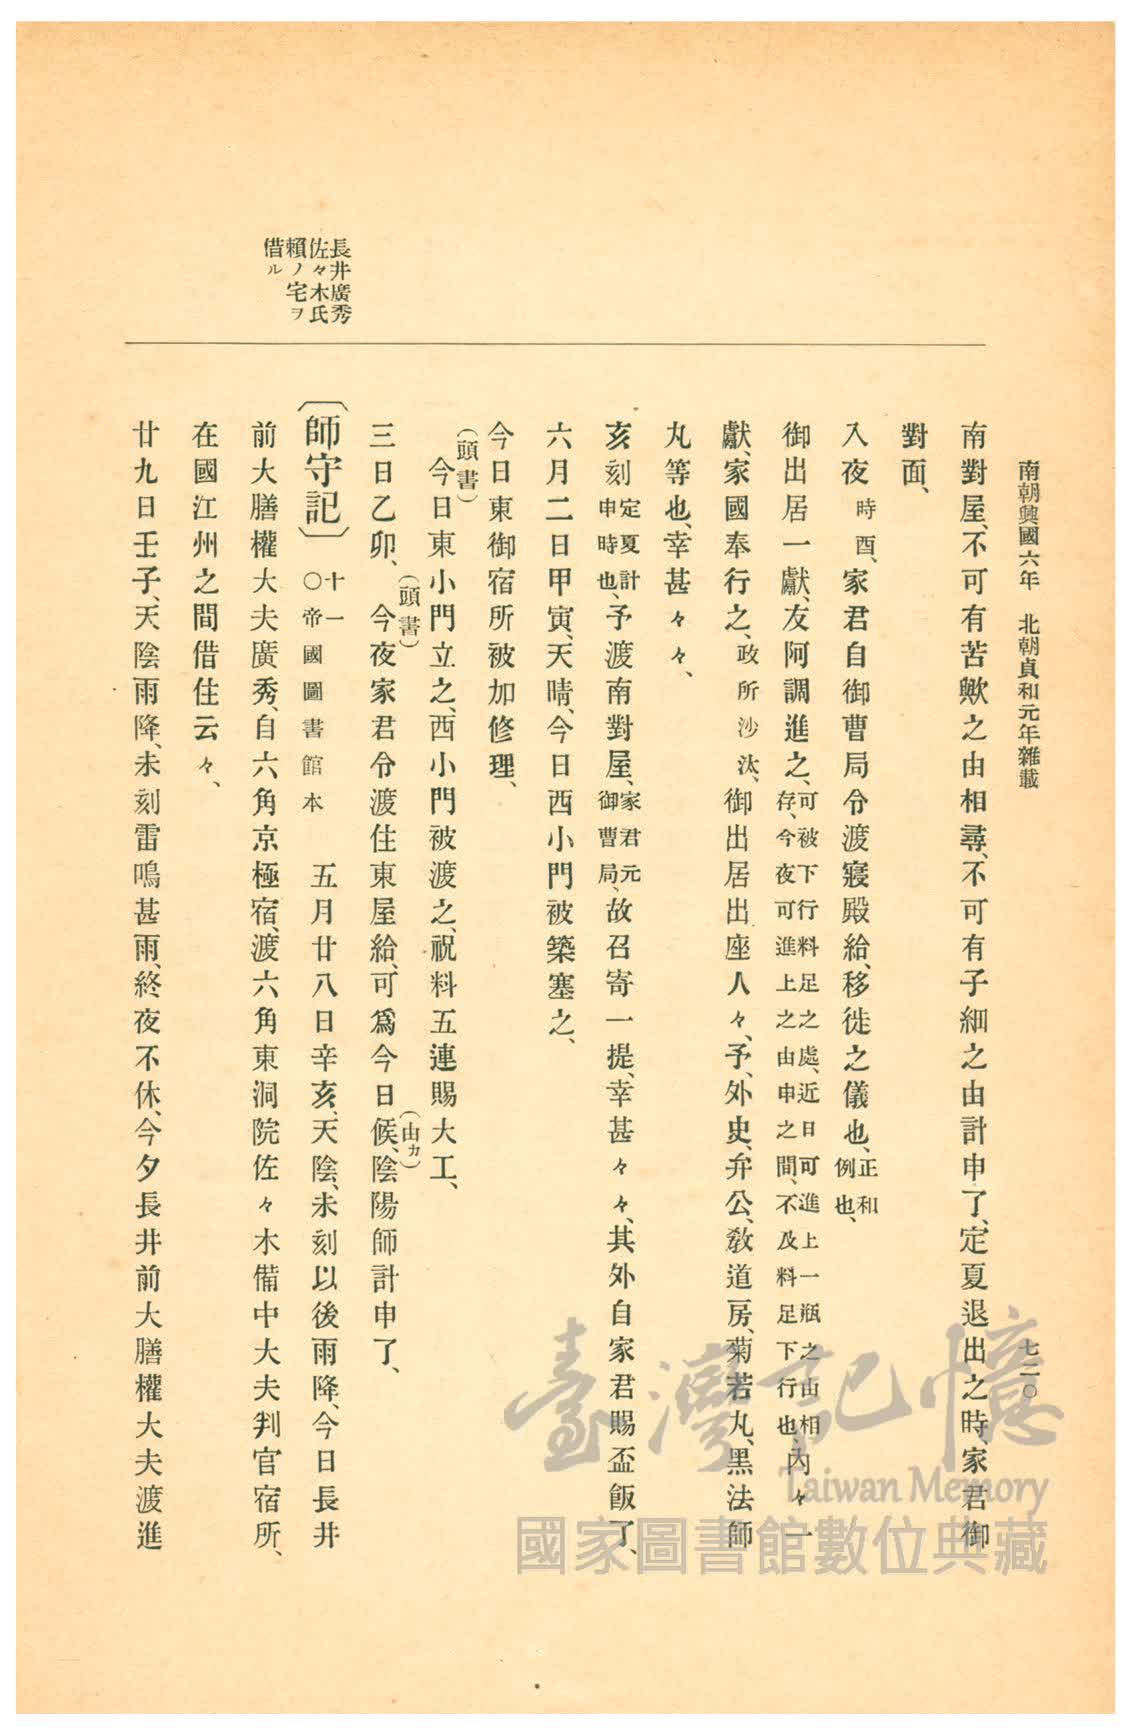 南朝興國六年　北朝貞和元年雜載
七二〇
南對屋、不可有苦歟之由相尋、不可有子細之由計申了、定夏退出之時、家君御
對面、
入夜時酉、家君自御曹局令渡寢殿給、移徙之儀也、正和例也、
御出居一獻、友阿調進之、可被下行料足之處、近日可進上一瓶之由相存、今夜可進上之由申之間、不及料足下行也、內々一
獻、家國奉行之、政所沙汰、御出居出座人々、予、外史、弁公、敎道房、菊若丸、黑法師
丸等也、幸甚々々、
亥刻定夏計申時也、予渡南對屋、家君元御曹局、故召寄一提、幸甚々々、其外自家君賜盃飯了、
六月二日甲寅、天晴、今日西小門被築塞之、
今日東御宿所被加修理、
（頭書）
今日東小門立之、西小門被渡之、祝料五連賜大工、
三日乙卯、（頭書）今夜家君令渡住東屋給、可爲今日候（由カ）、陰陽師計申了、
〔師守記〕十一〇帝國圖書館本　五月廿八日辛亥、天陰、未刻以後雨降、今日長井
前大膳權大夫廣秀、自六角京極宿、渡六角東洞院佐々木備中大夫判官宿所、
在國江州之間借住云々、
廿九日壬子、天陰雨降、未刻雷鳴甚雨、終夜不休、今夕長井前大膳權大夫渡進
長井廣秀
佐々木氏
賴ノ宅ヲ
借ル
臺灣記憶
Taiwan Memory
國家圖書館數位典藏